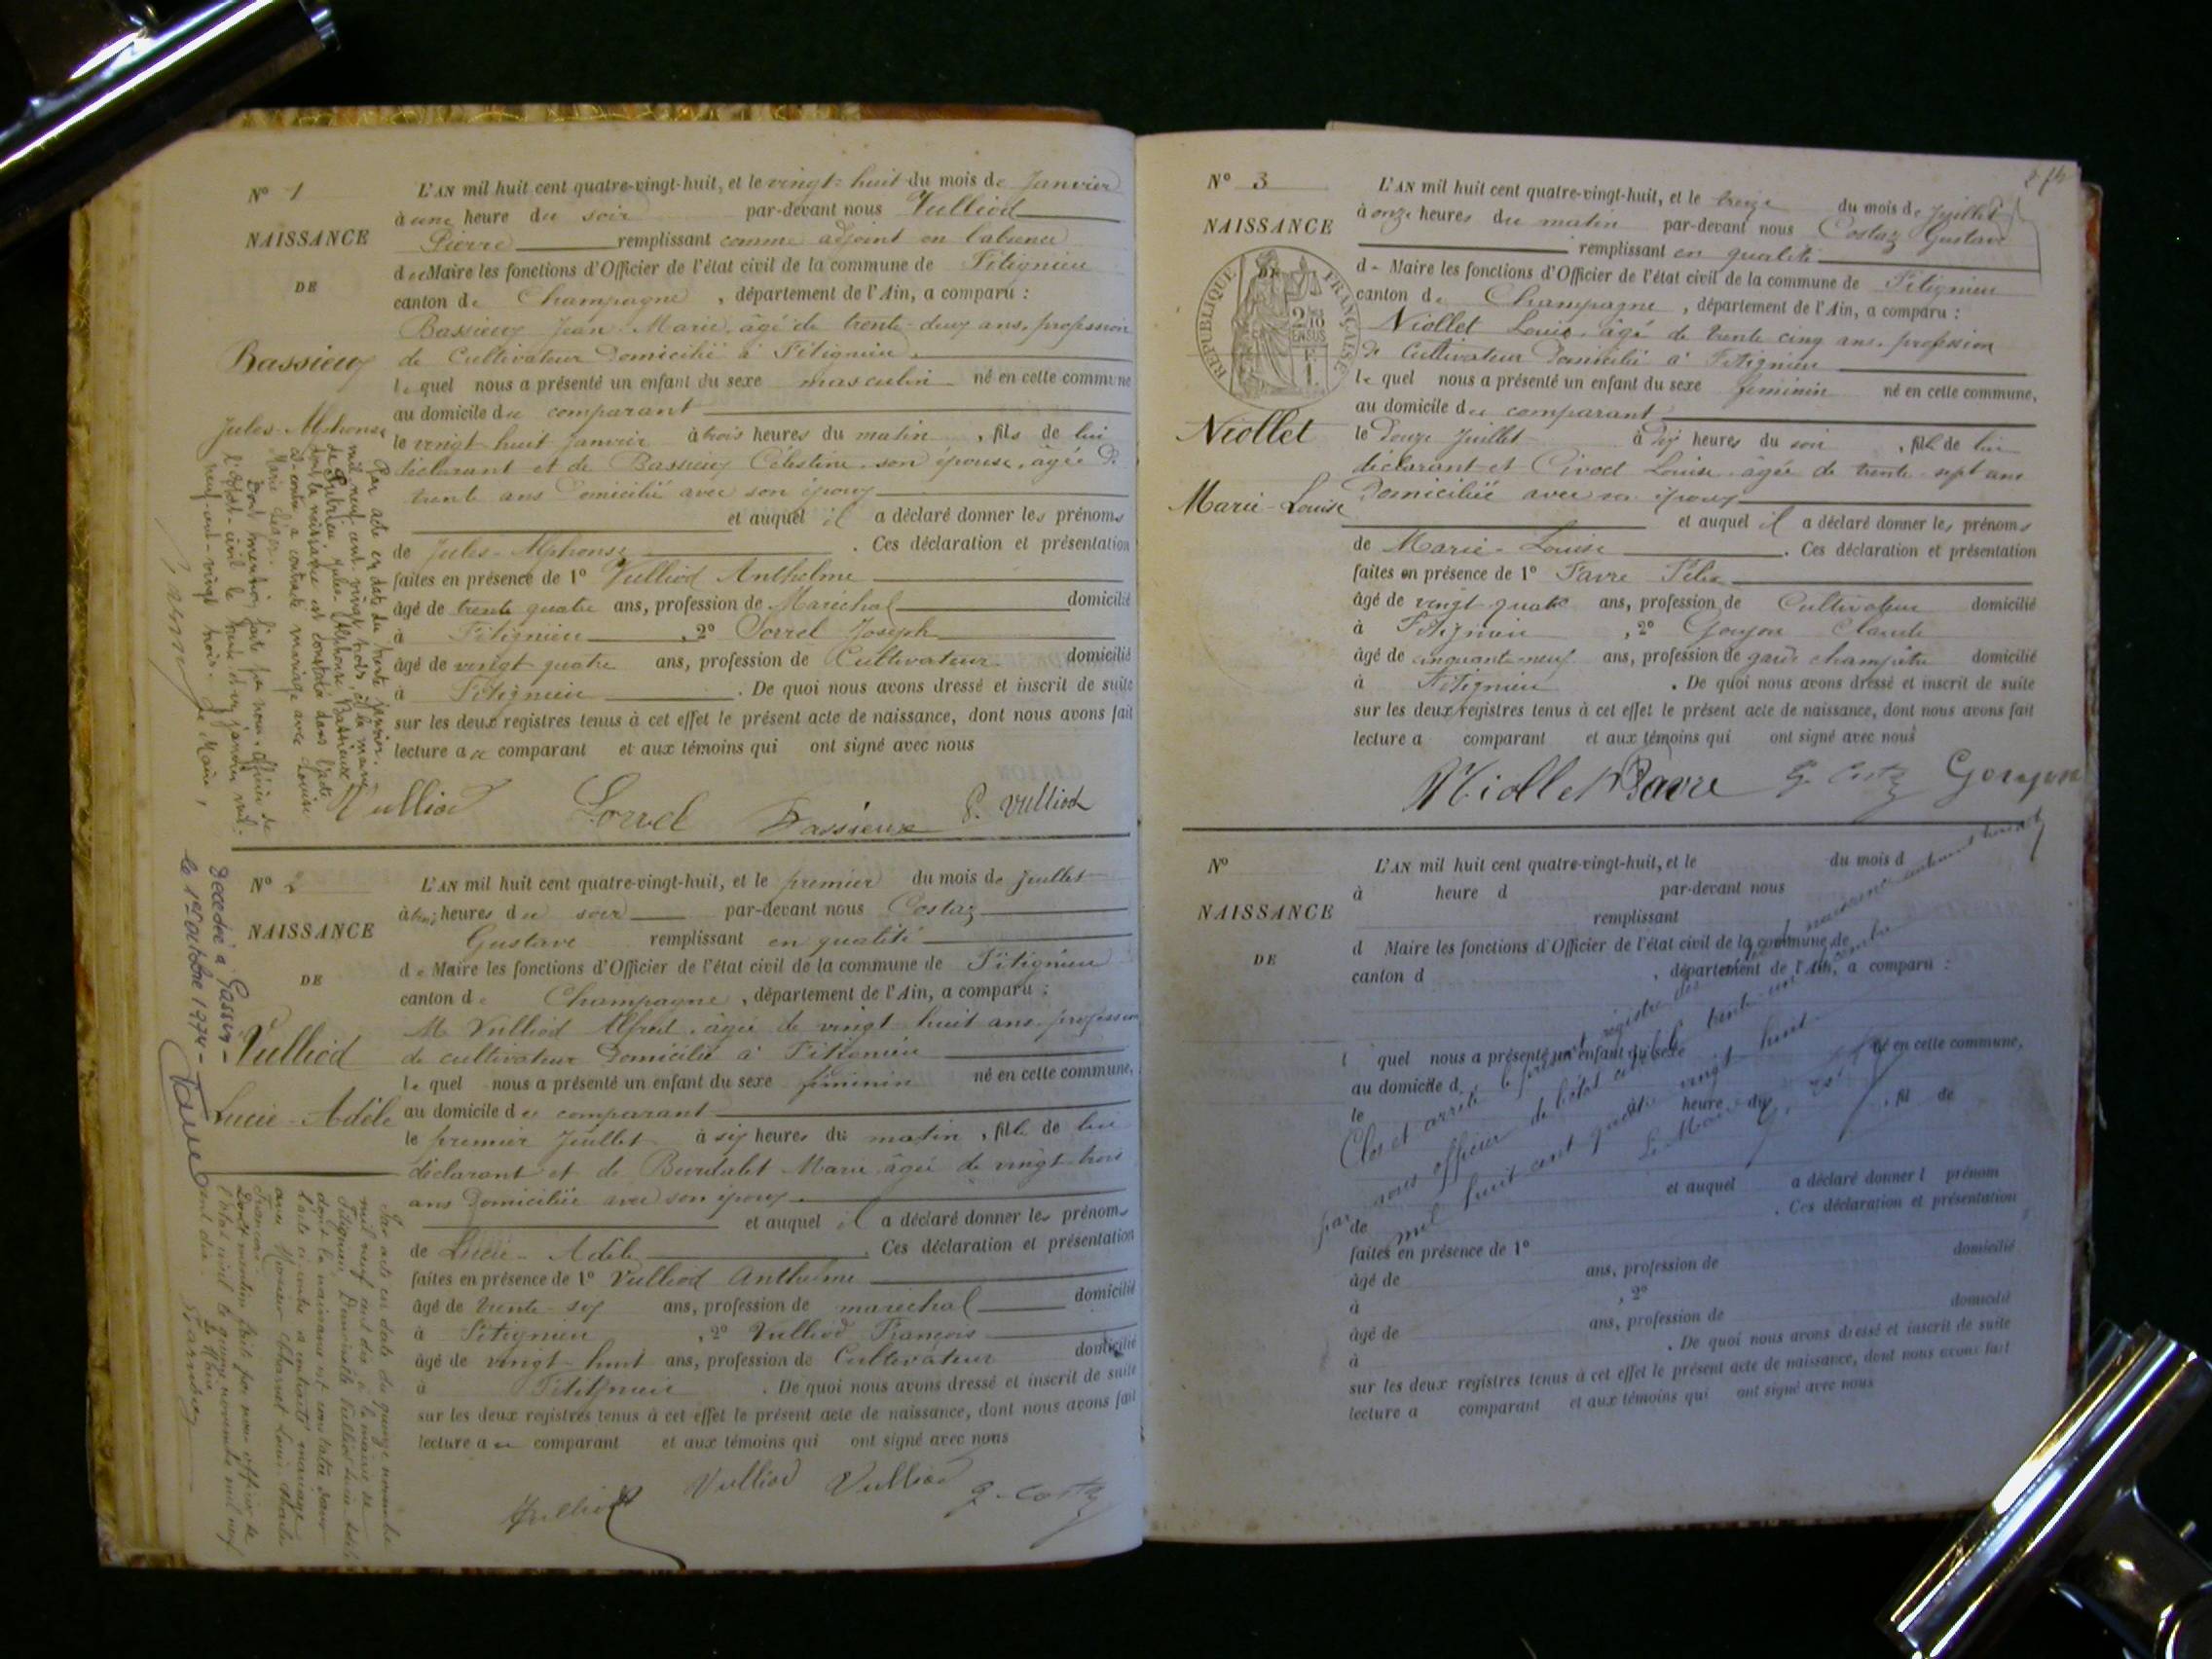 N° 1
NAISSANCE
DE
Bassieux
Jules-Alphonse
L'AN mil huit cent quatre-vingt-huit, et le vingt-huit du mois de Janvier
à une heure du soir par-devant nous Vulliod
Pierre remplissant comme adjoint en l'absence
du Maire les fonctions d'Officier de l'état civil de la commune de Fitignieu
canton de Champagne, département de l'Ain, a comparu :
Bassieux Jean Marie, âgé de trente-deux ans, profession
de Cultivateur Domicilié à Fitignieu
lequel nous a présenté un enfant du sexe masculin né en cette commune
au domicile du comparant
le vingt-huit Janvier à trois heures du matin, fils de lui
déclarant et de Bassieux Célestine, son épouse, âgée de
trente ans Domicilié avec son époux
et auquel il a déclaré donner les prénoms
de Jules-Alphonse. Ces déclaration et présentation
faites en présence de 1° Vulliod Anthelme
âgé de trente quatre ans, profession de Maréchal domicilié
à Fitignieu, 2° Sorrel Joseph
âgé de vingt quatre ans, profession de Cultivateur domicilié
à Fitignieu. De quoi nous avons dressé et inscrit de suite
sur les deux registres tenus à cet effet le présent acte de naissance, dont nous avons fait
lecture au comparant et aux témoins qui ont signé avec nous
Vulliod Sorrel Bassieux P. Vulliod
Par acte en date du trente janvier
mil neuf cent vingt trois, à la mairie
de Jules-Alphonse Bassieux
dont la naissance est constatée dans l'acte
ci-contre a contracté mariage avec Louise
Marie
Dont mention faite par nous, officier de
l'état-civil le trente et un janvier mil-
neuf-cent-vingt trois. Le Maire,
N° 2
NAISSANCE
DE
Vulliod
Lucie-Adèle
Décédée à Gassin -
le 1er Octobre 1974 -
L'AN mil huit cent quatre-vingt-huit, et le premier du mois de Juillet
à heures du soir par-devant nous Costaz
Gustave remplissant en qualité
de Maire les fonctions d'Officier de l'état civil de la commune de Fitignieu
canton de Champagne, département de l'Ain, a comparu :
M Vulliod Alfred, âgé de vingt huit ans, profession
de cultivateur Domicilié à Fitignieu
lequel nous a présenté un enfant du sexe féminin né en cette commune,
au domicile du comparant
le premier Juillet à six heures du matin, fille de lui
déclarant et de Marie âgée de vingt-trois
ans Domiciliée avec son époux
et auquel il a déclaré donner les prénoms
de Lucie-Adèle. Ces déclaration et présentation
faites en présence de 1° Vulliod Anthelme
âgé de trente-six ans, profession de maréchal domicilié
à Fitignieu, 2° Vulliod François
âgé de vingt-huit ans, profession de Cultivateur domicilié
à Fitignieu. De quoi nous avons dressé et inscrit de suite
sur les deux registres tenus à cet effet le présent acte de naissance, dont nous avons fait
lecture au comparant et aux témoins qui ont signé avec nous
Vulliod Vulliod Vulliod G. Costaz
Par acte en date du quinze novembre
mil neuf cent dix à la mairie de
Fitignieu, Demoiselle Vulliod Lucie Adèle
dont la naissance est constatée dans
l'acte ci-contre a contracté mariage
avec Monsieur Louis Charles
François
Dont mention faite par nous officier de
l'état civil le quinze novembre mil neuf
cent dix. Le Maire
N° 3
NAISSANCE
RÉPUBLIQUE FRANÇAISE
Niollet
Marie-Louise
L'AN mil huit cent quatre-vingt-huit, et le treize du mois de Juillet
à onze heures du matin par-devant nous Costaz Gustave
remplissant en qualité
de Maire les fonctions d'Officier de l'état civil de la commune de Fitignieu
canton de Champagne, département de l'Ain, a comparu :
Niollet Louis, âgé de trente cinq ans, profession
de Cultivateur Domicilié à Fitignieu
lequel nous a présenté un enfant du sexe féminin né en cette commune,
au domicile du comparant
le Douze Juillet à dix heures du soir, fille de lui
déclarant et Civoct Louise âgée de trente-sept ans
Domiciliée avec son époux
et auquel il a déclaré donner les prénoms
de Marie-Louise. Ces déclaration et présentation
faites en présence de 1° Favre Félix
âgé de vingt quatre ans, profession de Cultivateur domicilié
à Fitignieu, 2° Goujon Claude
âgé de cinquante-neuf ans, profession de garde champêtre domicilié
à Fitignieu. De quoi nous avons dressé et inscrit de suite
sur les deux registres tenus à cet effet le présent acte de naissance, dont nous avons fait
lecture a comparant et aux témoins qui ont signé avec nous
Niollet Favre G. Costaz Goujon
N°
NAISSANCE
DE
L'AN mil huit cent quatre-vingt-huit, et le du mois d
à heure d par-devant nous
remplissant
d Maire les fonctions d'Officier de l'état civil de la commune de
canton d, département de l'Ain, a comparu :
l quel nous a présenté un enfant du sexe né en cette commune,
au domicile d
le à heure du, fil de
et auquel a déclaré donner l prénom
de. Ces déclaration et présentation
faites en présence de 1°
âgé de ans, profession de domicilié
à, 2°
âgé de ans, profession de domicilié
à. De quoi nous avons dressé et inscrit de suite
sur les deux registres tenus à cet effet le présent acte de naissance, dont nous avons fait
lecture a comparant et aux témoins qui ont signé avec nous
Clos et arrêté le présent registre des naissances
par nous officier de l'état civil le trente un décembre
mil huit cent quatre vingt huit
Le Maire